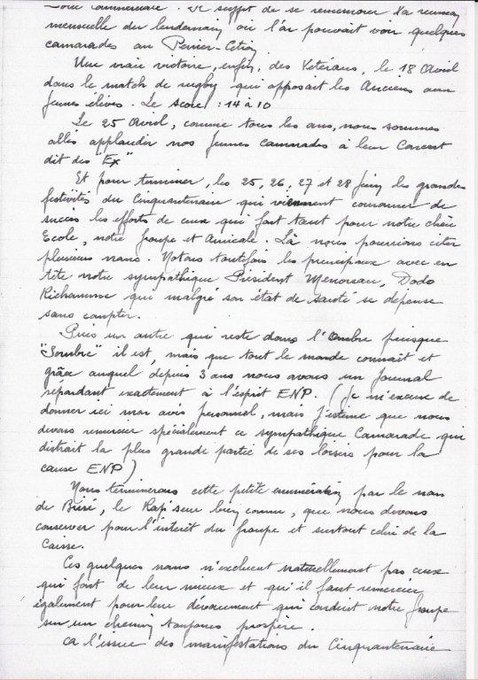 sans commentaire. Il suffit de se remémorer la réunion
mensuelle du lendemain où l'on pouvait voir quelques
camarades au Perrier-Citron
Une vraie victoire, enfin, des Vétérans, le 18 Avril
dans le match de rugby qui opposait les Anciens aux
jeunes élèves. Le score : 14 à 10
Le 25 Avril, comme tous les ans, nous sommes
allés applaudir nos jeunes camarades à leur Concert
dit des "Ex"
Et pour terminer, les 25, 26, 27 et 28 Juin les grandes
festivités du Cinquantenaire qui viennent couronner de
succès les efforts de ceux qui font tant pour notre chère
Ecole, notre groupe et Amicale. Là nous pourrions citer
plusieurs noms. Notons toutefois les principaux avec en
tête notre sympathique Président Menoreau, Dodo
Richomme qui malgré son état de santé se dépense
sans compter.
Puis un autre qui reste dans l'Ombre puisque
"Sombre" il est, mais que tout le monde connait et
grâce auquel depuis 3 ans nous avons un Journal
répondant exactement à l'esprit ENP. (Je m'excuse de
donner ici mon avis personnel, mais j'estime que nous
devons remercier spécialement ce sympathique Camarade qui
distrait la plus grande partie de ses loisirs pour la
cause ENP)
Nous terminerons cette petite énumération par le nom
de Biré, le Rap'seur bien connu, que nous devons
conserver pour l'intérêt du groupe et surtout celui de la
Caisse.
Ces quelques noms n'excluent naturellement pas ceux
qui font de leur mieux et qu'il faut remercier
également pour leur dévouement qui conduit notre groupe
sur un chemin toujours prospère.
A l'issue des manifestations du Cinquantenaire